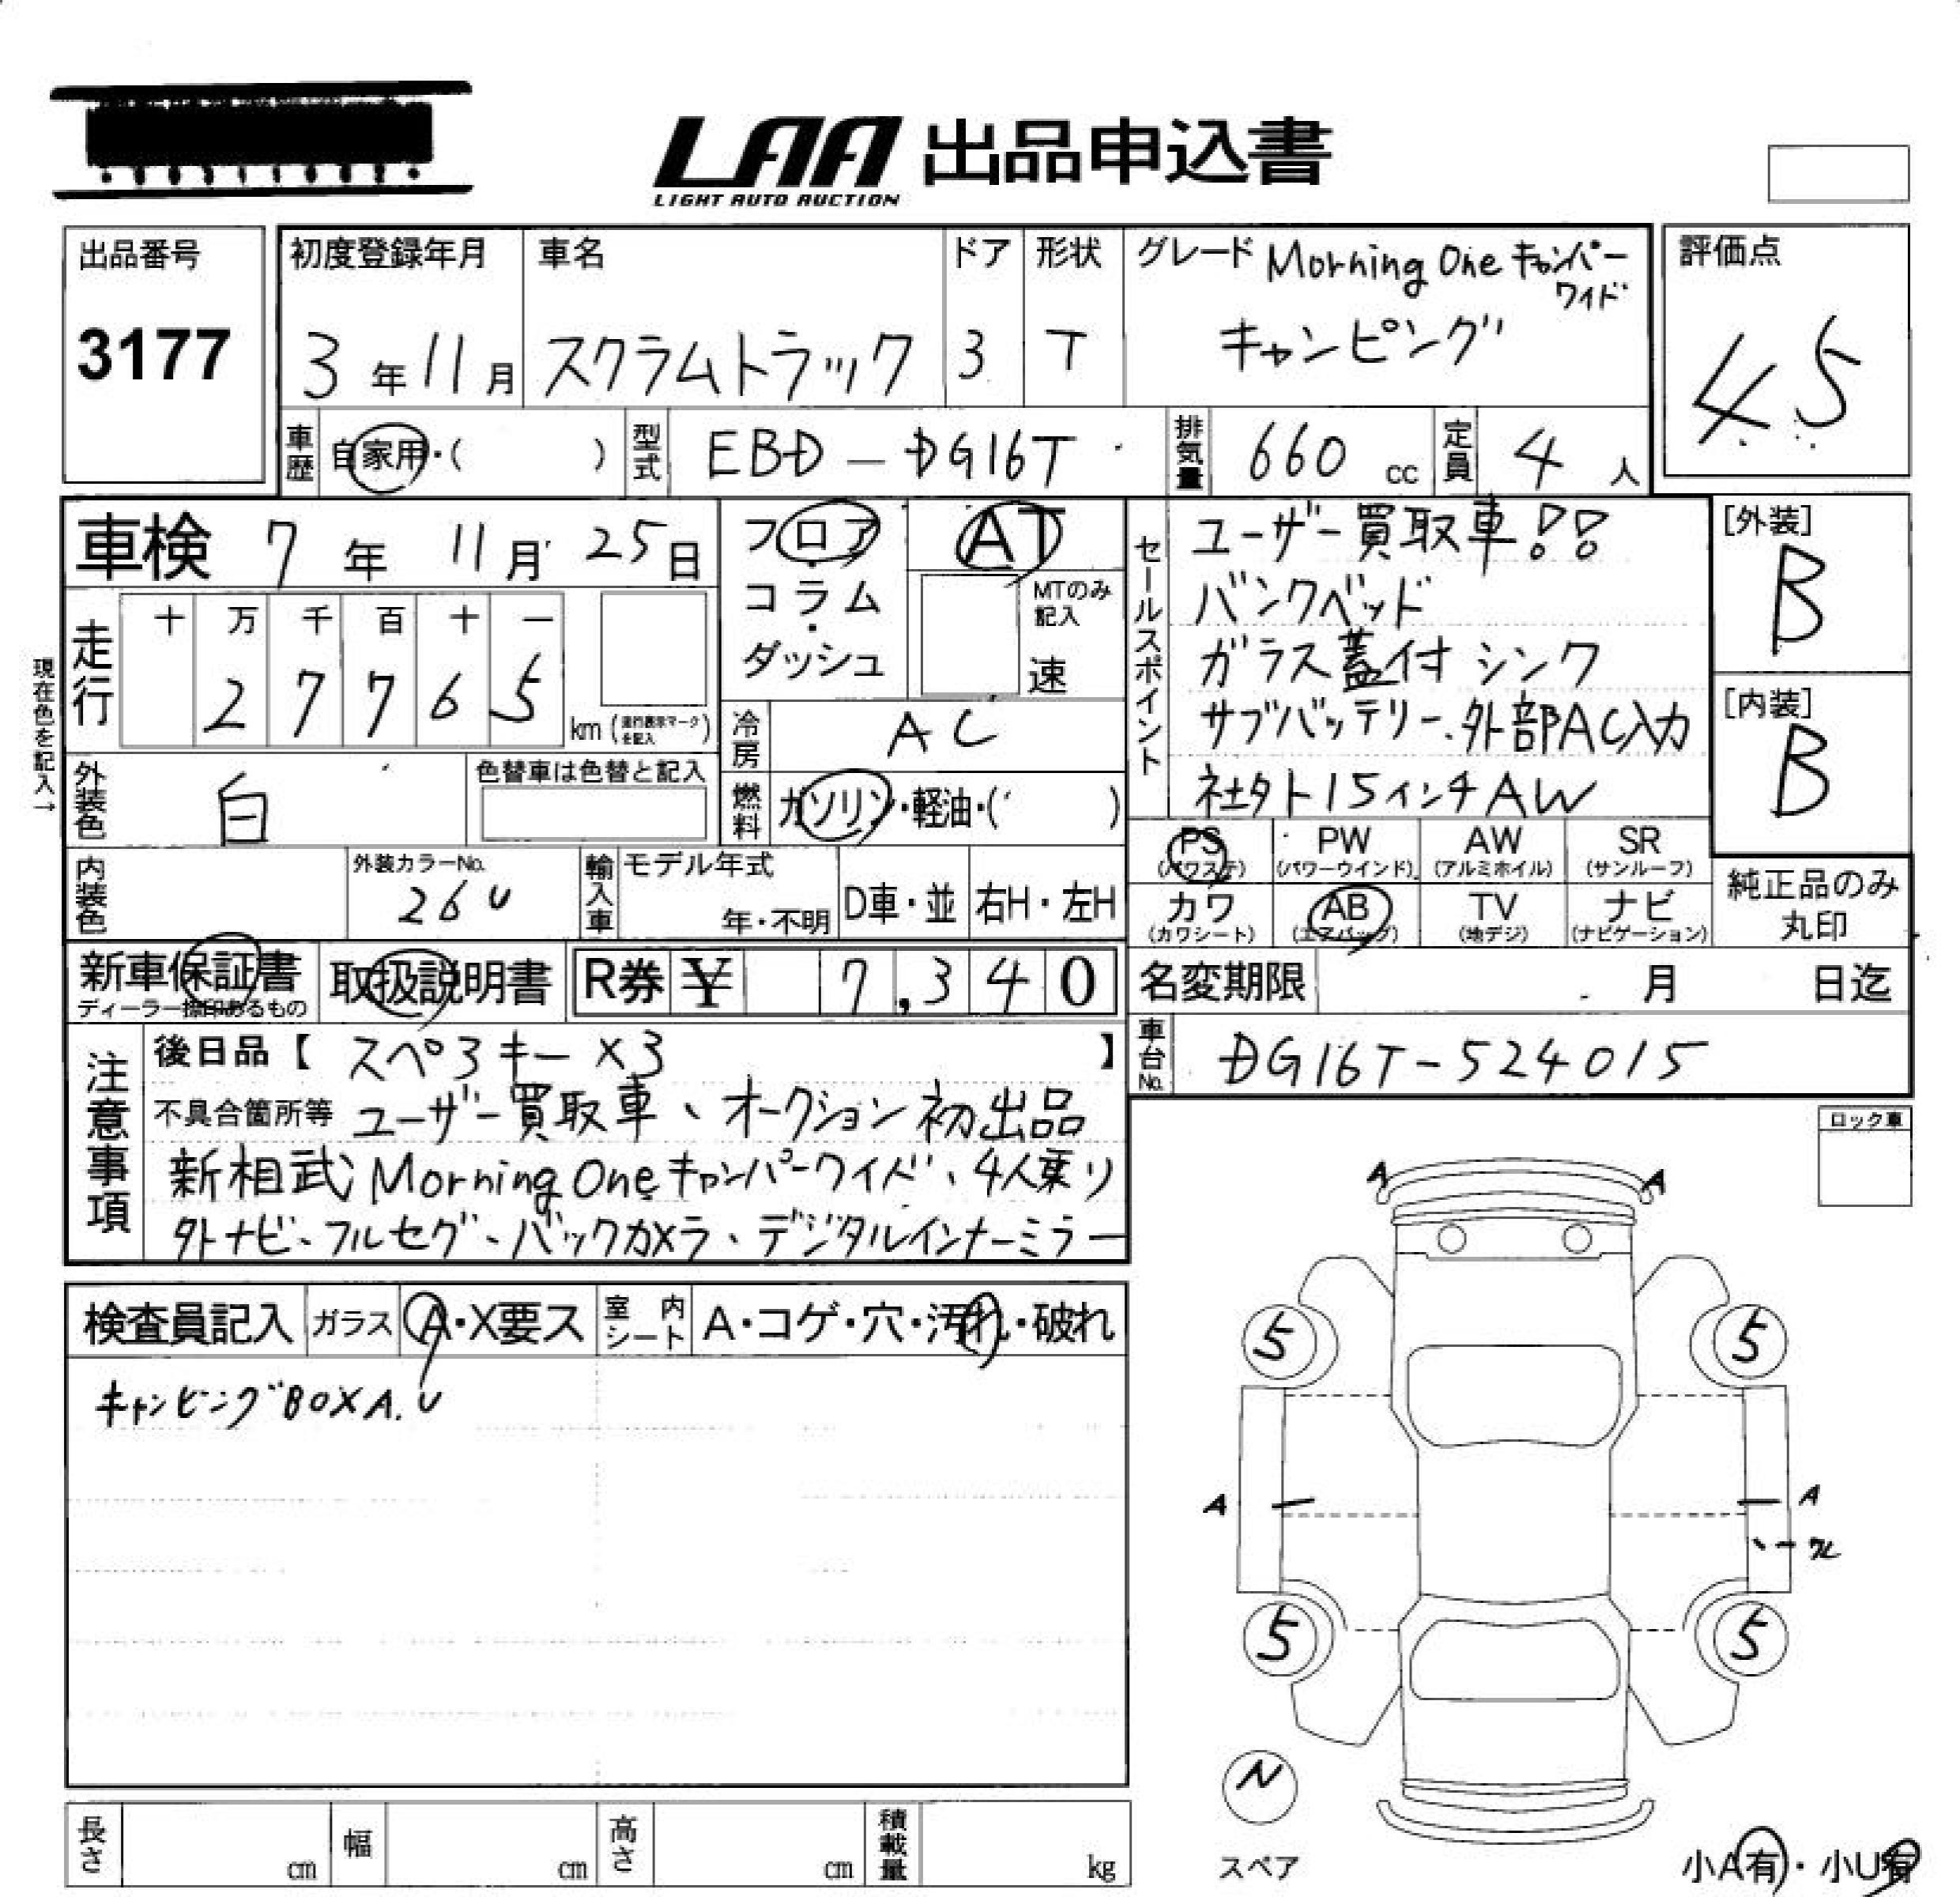 LAA 出品申込書
LIGHT AUTO AUCTION
出品番号
3177
初度登録年月
3年11月
車名
スクラムトラック
ドア
3
形状
T
グレード Morning One キャンパー
ワイド
キャンピング
評価点
4.5
車歴 自家用・( )
型式 EBD-DG16T
排気量 660 cc
定員 4 人
車検 7年 11月 25日
現在色を記入→
走行
十 万 千 百 十 一
2 7 7 6 5
km (走行表示マークを記入)
フロア・コラム・ダッシュ
AT
MTのみ記入
速
冷房 AC
燃料 ガソリン・軽油・( )
外装色 白
色替車は色替と記入
内装色
外装カラーNo.
26U
輸入車
モデル年式
年・不明
D車・並
右H・左H
セールスポイント
ユーザー買取車!!
バンクベッド
ガラス蓋付シンク
サブバッテリー、外部AC入力
社外15インチAW
[外装]
B
[内装]
B
PS (パワステ)
PW (パワーウインド)
AW (アルミホイル)
SR (サンルーフ)
カワ (カワシート)
AB (エアバッグ)
TV (地デジ)
ナビ (ナビゲーション)
純正品のみ丸印
新車保証書
ディーラー捺印あるもの
取扱説明書
R券 ¥ 7,340
名変期限 月 日迄
車台No. DG16T-524015
注意事項
後日品【 スペ3キー×3 】
不具合箇所等 ユーザー買取車、オークション初出品
新相武Morning Oneキャンパーワイド、4人乗り
外ナビ、フルセグ、バックカメラ、デジタルインナーミラー
ロック車
検査員記入
ガラス A・X要ス
室内シート A・コゲ・穴・汚れ・破れ
キャンピングBOXA.U
A A
5 5
A A
5 5
N
スペア
長さ cm
幅 cm
高さ cm
積載量 kg
小A有・小U有